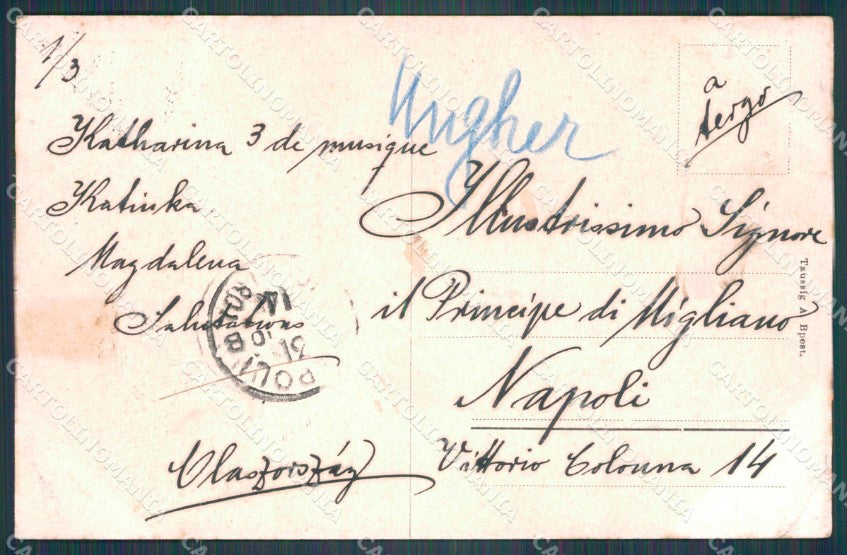 1/3
Katharina 3 de musique
Katinka
Magdalena
Salutations
Olaszország
Ungher
a
tergo
Illustrissimo Signore
il Principe di Migliano
Napoli
Vittorio Colonna 14
Taussig A. Bpest.
CARTOLINOMANIA